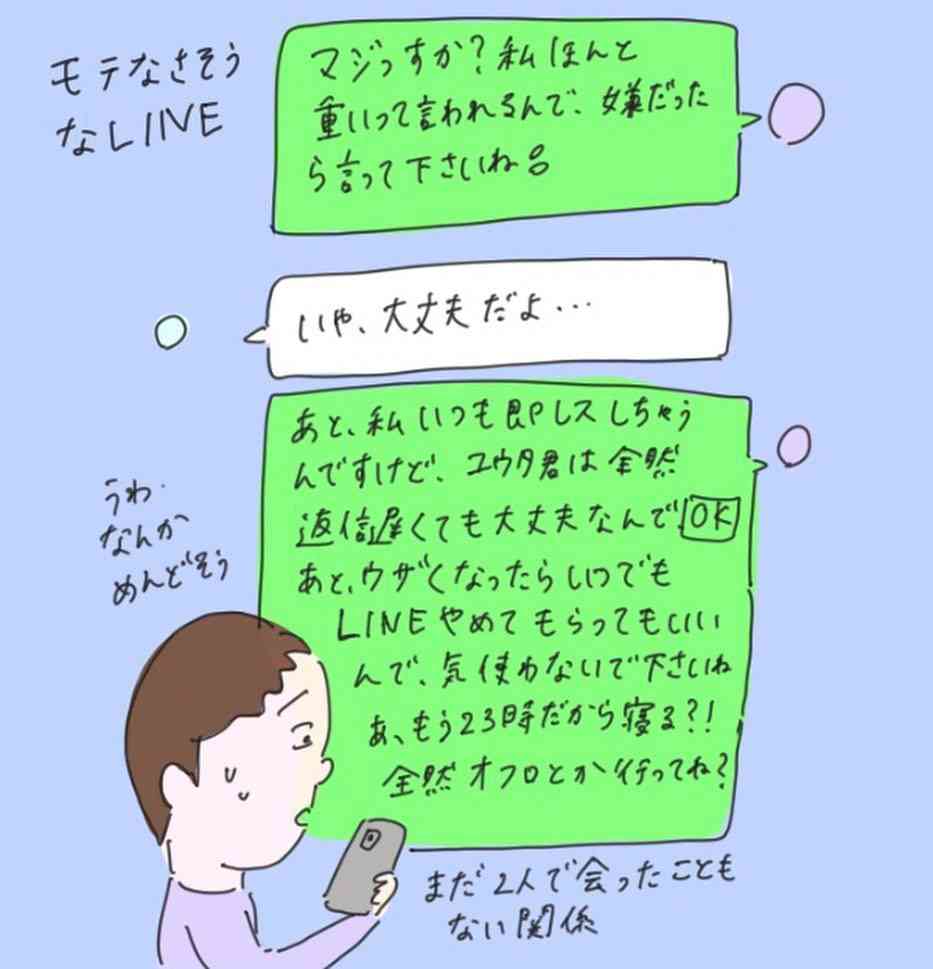 モテなさそう
なLINE
マジっすか?私ほんと
重いって言われるんで、嫌だった
ら言って下さいね
いや、大丈夫だよ...
あと、私いつも即レスしちゃう
んですけど、ユウタ君は全然
返信遅くても大丈夫なんでOK
あと、ウザくなったらいつでも
LINEやめてもらってもいい
んで、気使わないで下さいね
あ、もう23時だから寝る?!
全然オフロとか行ってね?
うわ.
なんか
めんどそう
まだ2人で会ったことも
ない関係